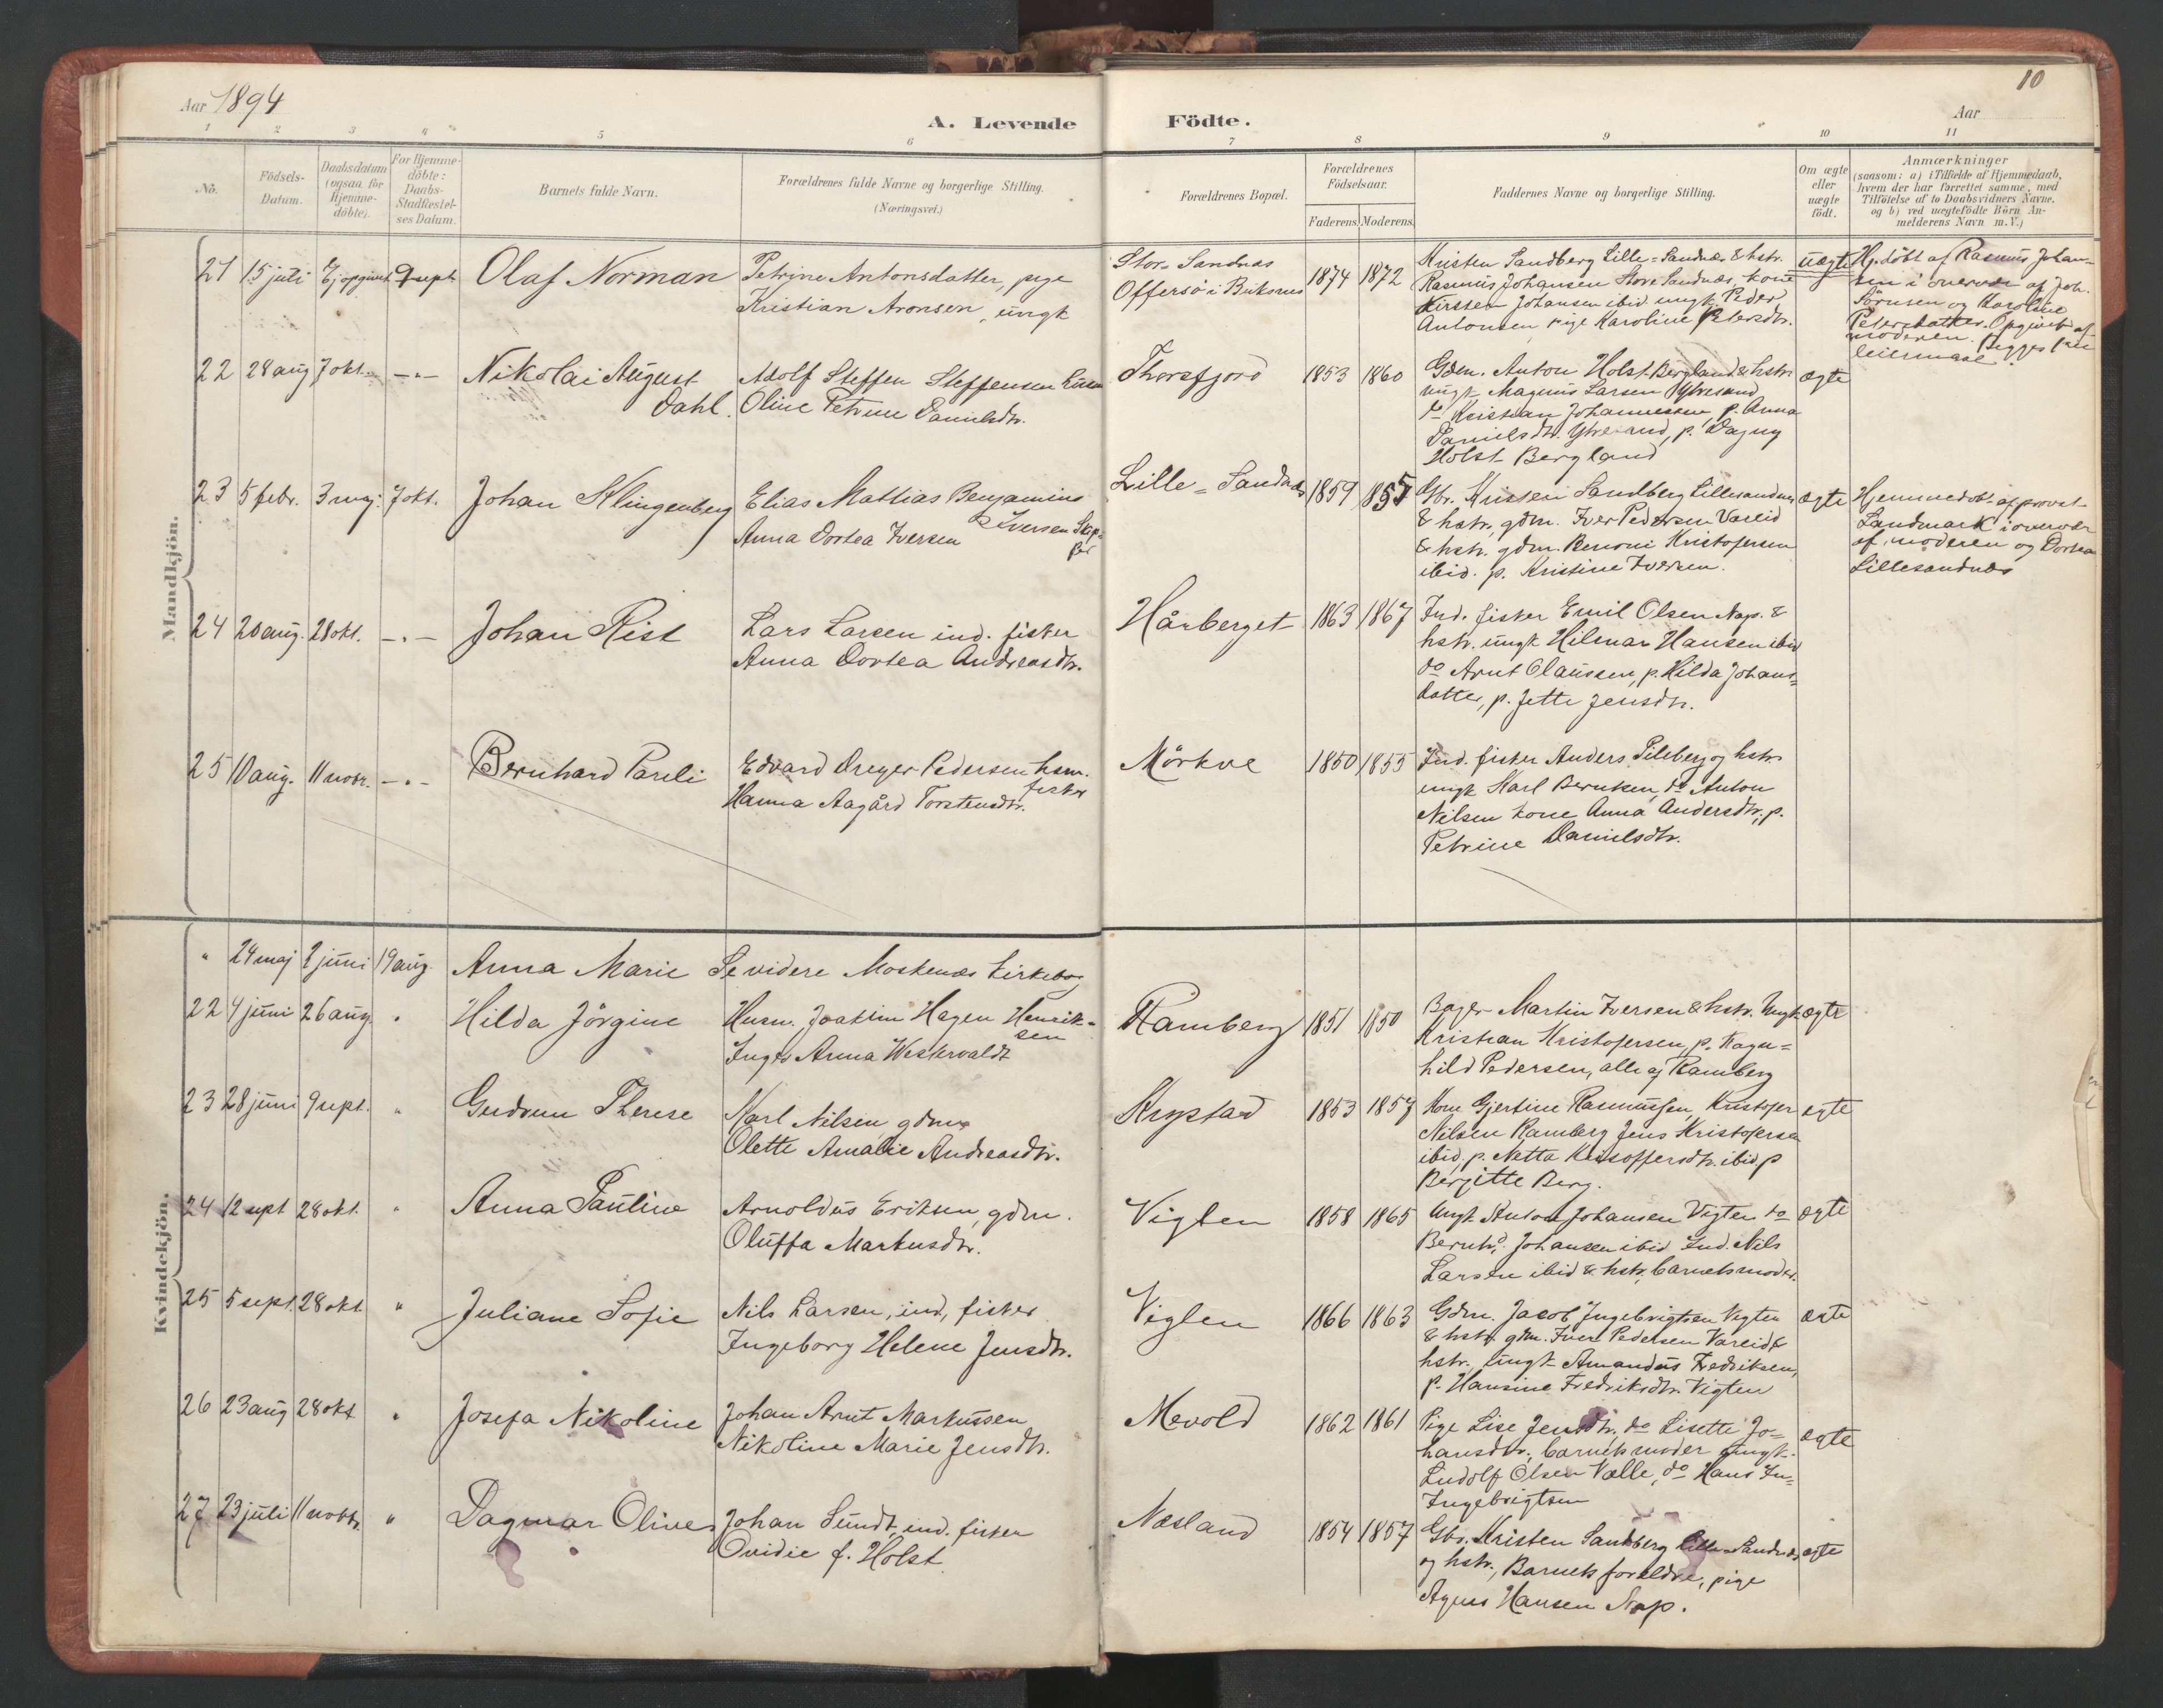 Aar 1894
A. Levende Födte.
Aar
10
1 2 3 4 5 6 7 8 9 10 11
No.
Födsels-
Datum.
Daabsdatum
(ogsaa for
Hjemme-
döbte).
For Hjemme-
döbte:
Daabs-
Stadfæstel-
ses Datum.
Barnets fulde Navn.
Forældrenes fulde Navne og borgerlige Stilling.
(Næringsvei.)
Forældrenes Bopæl.
Forældrenes
Födselsaar.
Faderens. Moderens.
Faddernes Navne og borgerlige Stilling.
Om ægte
eller
uægte
födt.
Anmærkninger
(saasom: a) i Tilfælde af Hjemmedaab,
hvem der har forrettet samme, med
Tilföielse af to Daabsvidners Navne.
og b) ved uægtefödte Börn An-
melderens Navn m.V.)
Mandkjön.
21 15 juli Ej opgivet 9 sept. Olaf Norman
Petrine Antonsdatter, pige
Kristian Aronsen, ungk
Stor-Sandnæs
Offersö i Buksnes
1874 1872
Kristen Sandberg Lille-Sandnæs & hstr.
Rasmus Johansen Store Sandnæs, kone
Kirsten Johansen ibid. ungk Peder
Antonsen, pige Karoline Petersdtr.
uægte
Hj.döbt af Rasmus Johan-
sen i overvær af Joh.
Sörensen og Karoline
Petersdatter. Opgivet af
moderen. Begges förste
leiermaal.
22 28 aug 7 okt. -"- Nikolai August
Dahl.
Adolf Steffen Steffensen
Oline Petrine Danielsdtr.
Thorsfjord
1853 1860
Gdm. Anton Holst Bergland & hstr.
ungk. Magnus Larsen Ytresand
do Kristian Johannessen, p. Anna
Danielsdtr. Ytresand, p. Dagny
Holst Bergland
ægte
23 5 febr. 3 maj. 7 okt. Johan Klingenberg
Elias Mattias Benjamins
Iversen Skip-
per
Anna Dortea Iversen
Lille-Sandnæs
1859 1857
Gbr. Kristen Sandberg Lillesandnæs
& hstr., gdm. Iver Pedersen Vareid
& hstr. gdm. Benoni Kristofersen
ibid. p. Kristine Iversen.
ægte
Hjemmedöbt af provst
Landmark i overvær
af moderen og Dortea
Lillesandnæs
24 20 aug. 28 okt. -"- Johan Rist
Lars Larsen ind. fisker
Anna Dortea Andreasdtr.
Hårberget
1863 1867
Ind. fisker Emil Olsen Nap. &
hstr. ungk Hilmar Hansen ibid
do Arnt Olaussen, p. Hilda Johans-
datter, p. Jette Jensdtr.
25 10 aug. 11 novr. -"- Bernhard Pareli
Edvard Dreyer Pedersen hsm.
fisker
Hanna Aagård Torstensdtr.
Mörkve
1850 1855
Ind. fisker Anders Pileberg og hstr
ungk Karl Berntsen, do Anton
Nilsen kone Anna Andersdtr., p.
Petrine Danielsdtr.
Kvindekjön.
" 24 maj 2 juni 19 aug. Anna Marie Se videre Moskenæs kirkebog
22 4 juni 26 aug. " Hilda Jörgine
Husm. Joakim Hagen Henrik-
sen
Inger Anna Westervaldt
Ramberg
1851 1850
Bager Martin Iversen & hstr. Ungk
Kristian Kristofersen, p. Ragn-
hild Pedersen, alle af Ramberg
ægte
23 28 juni 9 sept. " Gudrun Therese
Karl Nilsen, gdm
Olette Amalie Andreasdtr.
Krystad
1853 1857
Kone Gjertine Rasmussen, Kristofer
Nilsen Ramberg Jens Kristofersen
ibid, p. Netta Kristoffersdtr. ibid p
Bergitte Berg.
ægte
24 12 sept 28 okt. " Anna Pauline
Arnoldus Eriksen, gdm.
Oluffa Markusdtr.
Vigten
1858 1865
Ungk Anton Johansen Vigten do
Bernhd. Johansen ibid Ind. Nils
Larsen ibid & hstr, barnets moder.
ægte
25 5 sept. 28 okt. " Juliane Sofie
Nils Larsen, ind, fisker
Ingeborg Helene Jensdtr.
Vigten
1866 1863
Gdm. Jacob Ingebrigtsen Vigten
& hstr gdm. Iver Pedersen Vareid &
hstr., ungk Amandus Fredriksen,
p. Hansine Fredriksdtr. Vigten
ægte
26 23 aug 28 okt " Josefa Nikoline
Johan Arnt Markussen
Nikoline Marie Jensdtr.
Mevold
1862 1861
Pige Lise Jensdtr, do Lisette Jo-
hansdtr., barnets moder ungk.
Ludolf Olsen Valle, do Hans In-
Ingebrigtsen
ægte
27 23 juli 11 novbr. " Dagmar Olive
Johan Sundt, ind. fisker
Ovidie f. Holst
Næsland
1854 1857
Gbr. Kristen Sandberg Lille-Sandnæs
og hstr., Barnets forældre, pige
Agnes Hansen Nap.
ægte